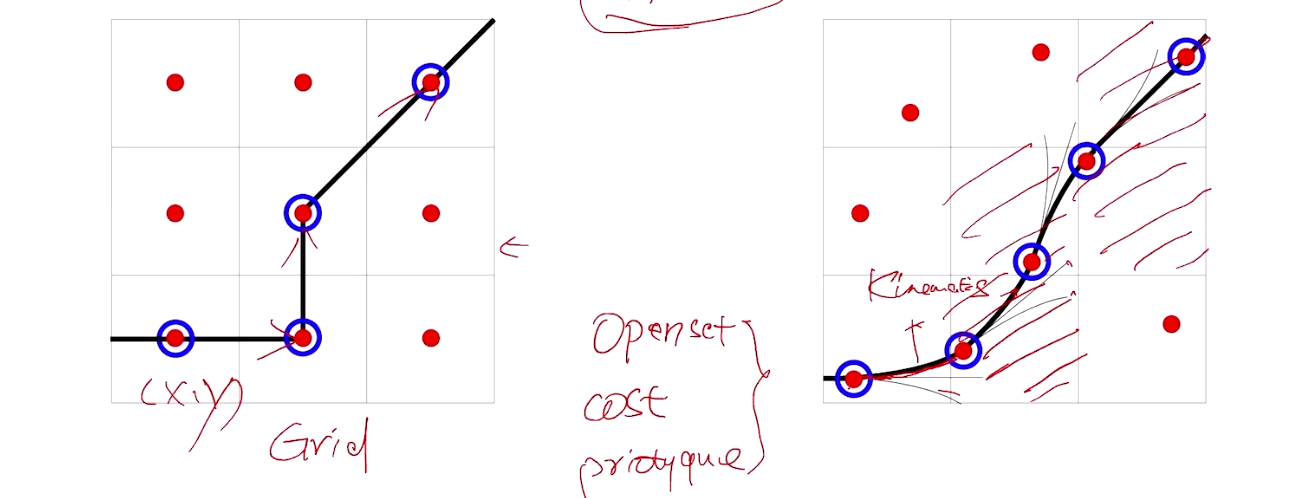 (x,y)
Grid
Openset
cost
priotyque
Kinematis